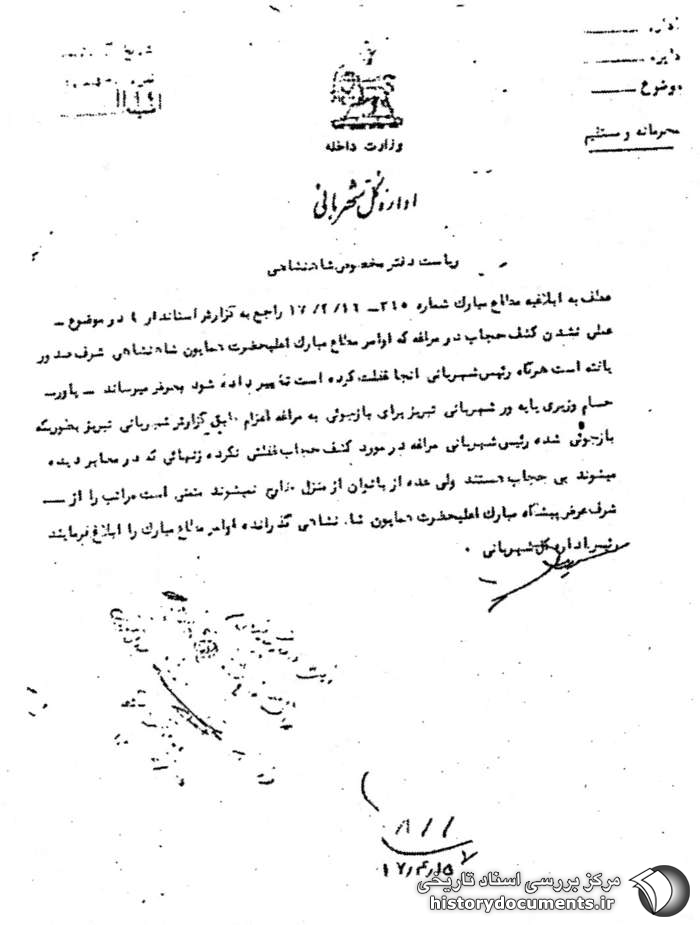 اداره
دایره
موضوع
محرمانه و مستقیم
تاریخ
نمره
وزارت داخله
اداره کل شهربانی
ریاست دفتر مخصوص شاهنشاهی
عطف به ابلاغیه مطاع مبارک شماره ۲۴۵ – ۱۷/۲/۱۶ راجع به گزارش استاندار ۴ در موضوع –
عملی نشدن کشف حجاب در مراغه که اوامر مطاع مبارک اعلیحضرت همایون شاهنشاهی شرف صدور
یافته است هرگاه رئیس شهربانی آنجا غفلت کرده است تغییر داده شود بعرض میرساند – یاور –
حسام وزیری پایه ور شهربانی تبریز برای بازجوئی به مراغه اعزام طبق گزارش شهربانی تبریز بطوریکه
بازجوئی شده رئیس شهربانی مراغه در مورد کشف حجاب غفلتی نکرده زنهائی که در معابر دیده
میشوند بی حجاب هستند ولی عده از بانوان از منزل خارج نمیشوند متمنی است مراتب را از –
شرف عرض پیشگاه مبارک اعلیحضرت همایون شاهنشاهی گذرانده اوامر مطاع مبارک را ابلاغ فرمایند
رئیس اداره کل شهربانی .
۸۱۱
۱۷/۴/۱۵
مرکز بررسی اسناد تاریخی
historydocuments.ir